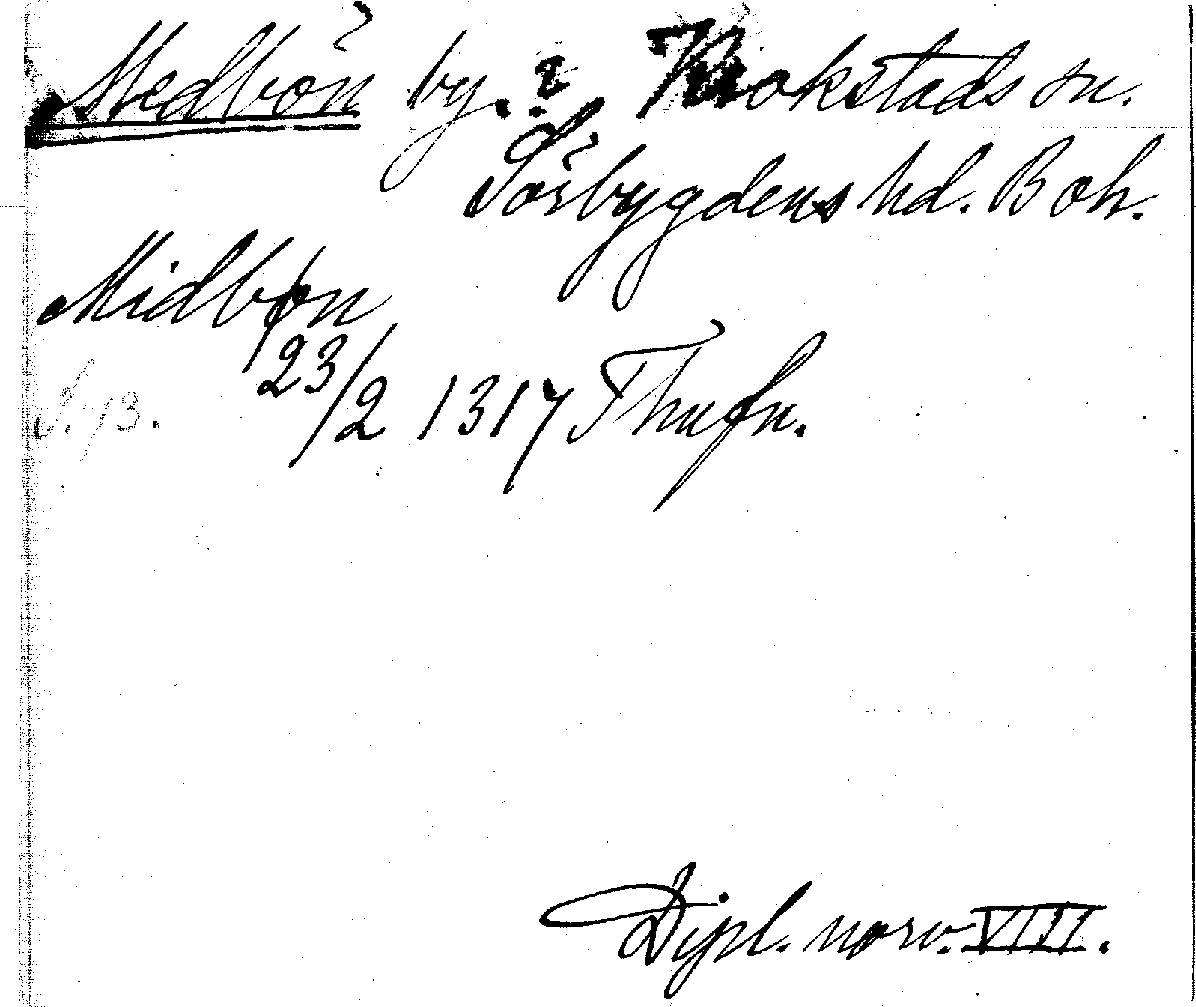 Medbön by. i Krokstads sn.
Sörbygdens hd. Boh.
Midbøn
S. 73. 23/2 1317
Dipl. norv. VIII.